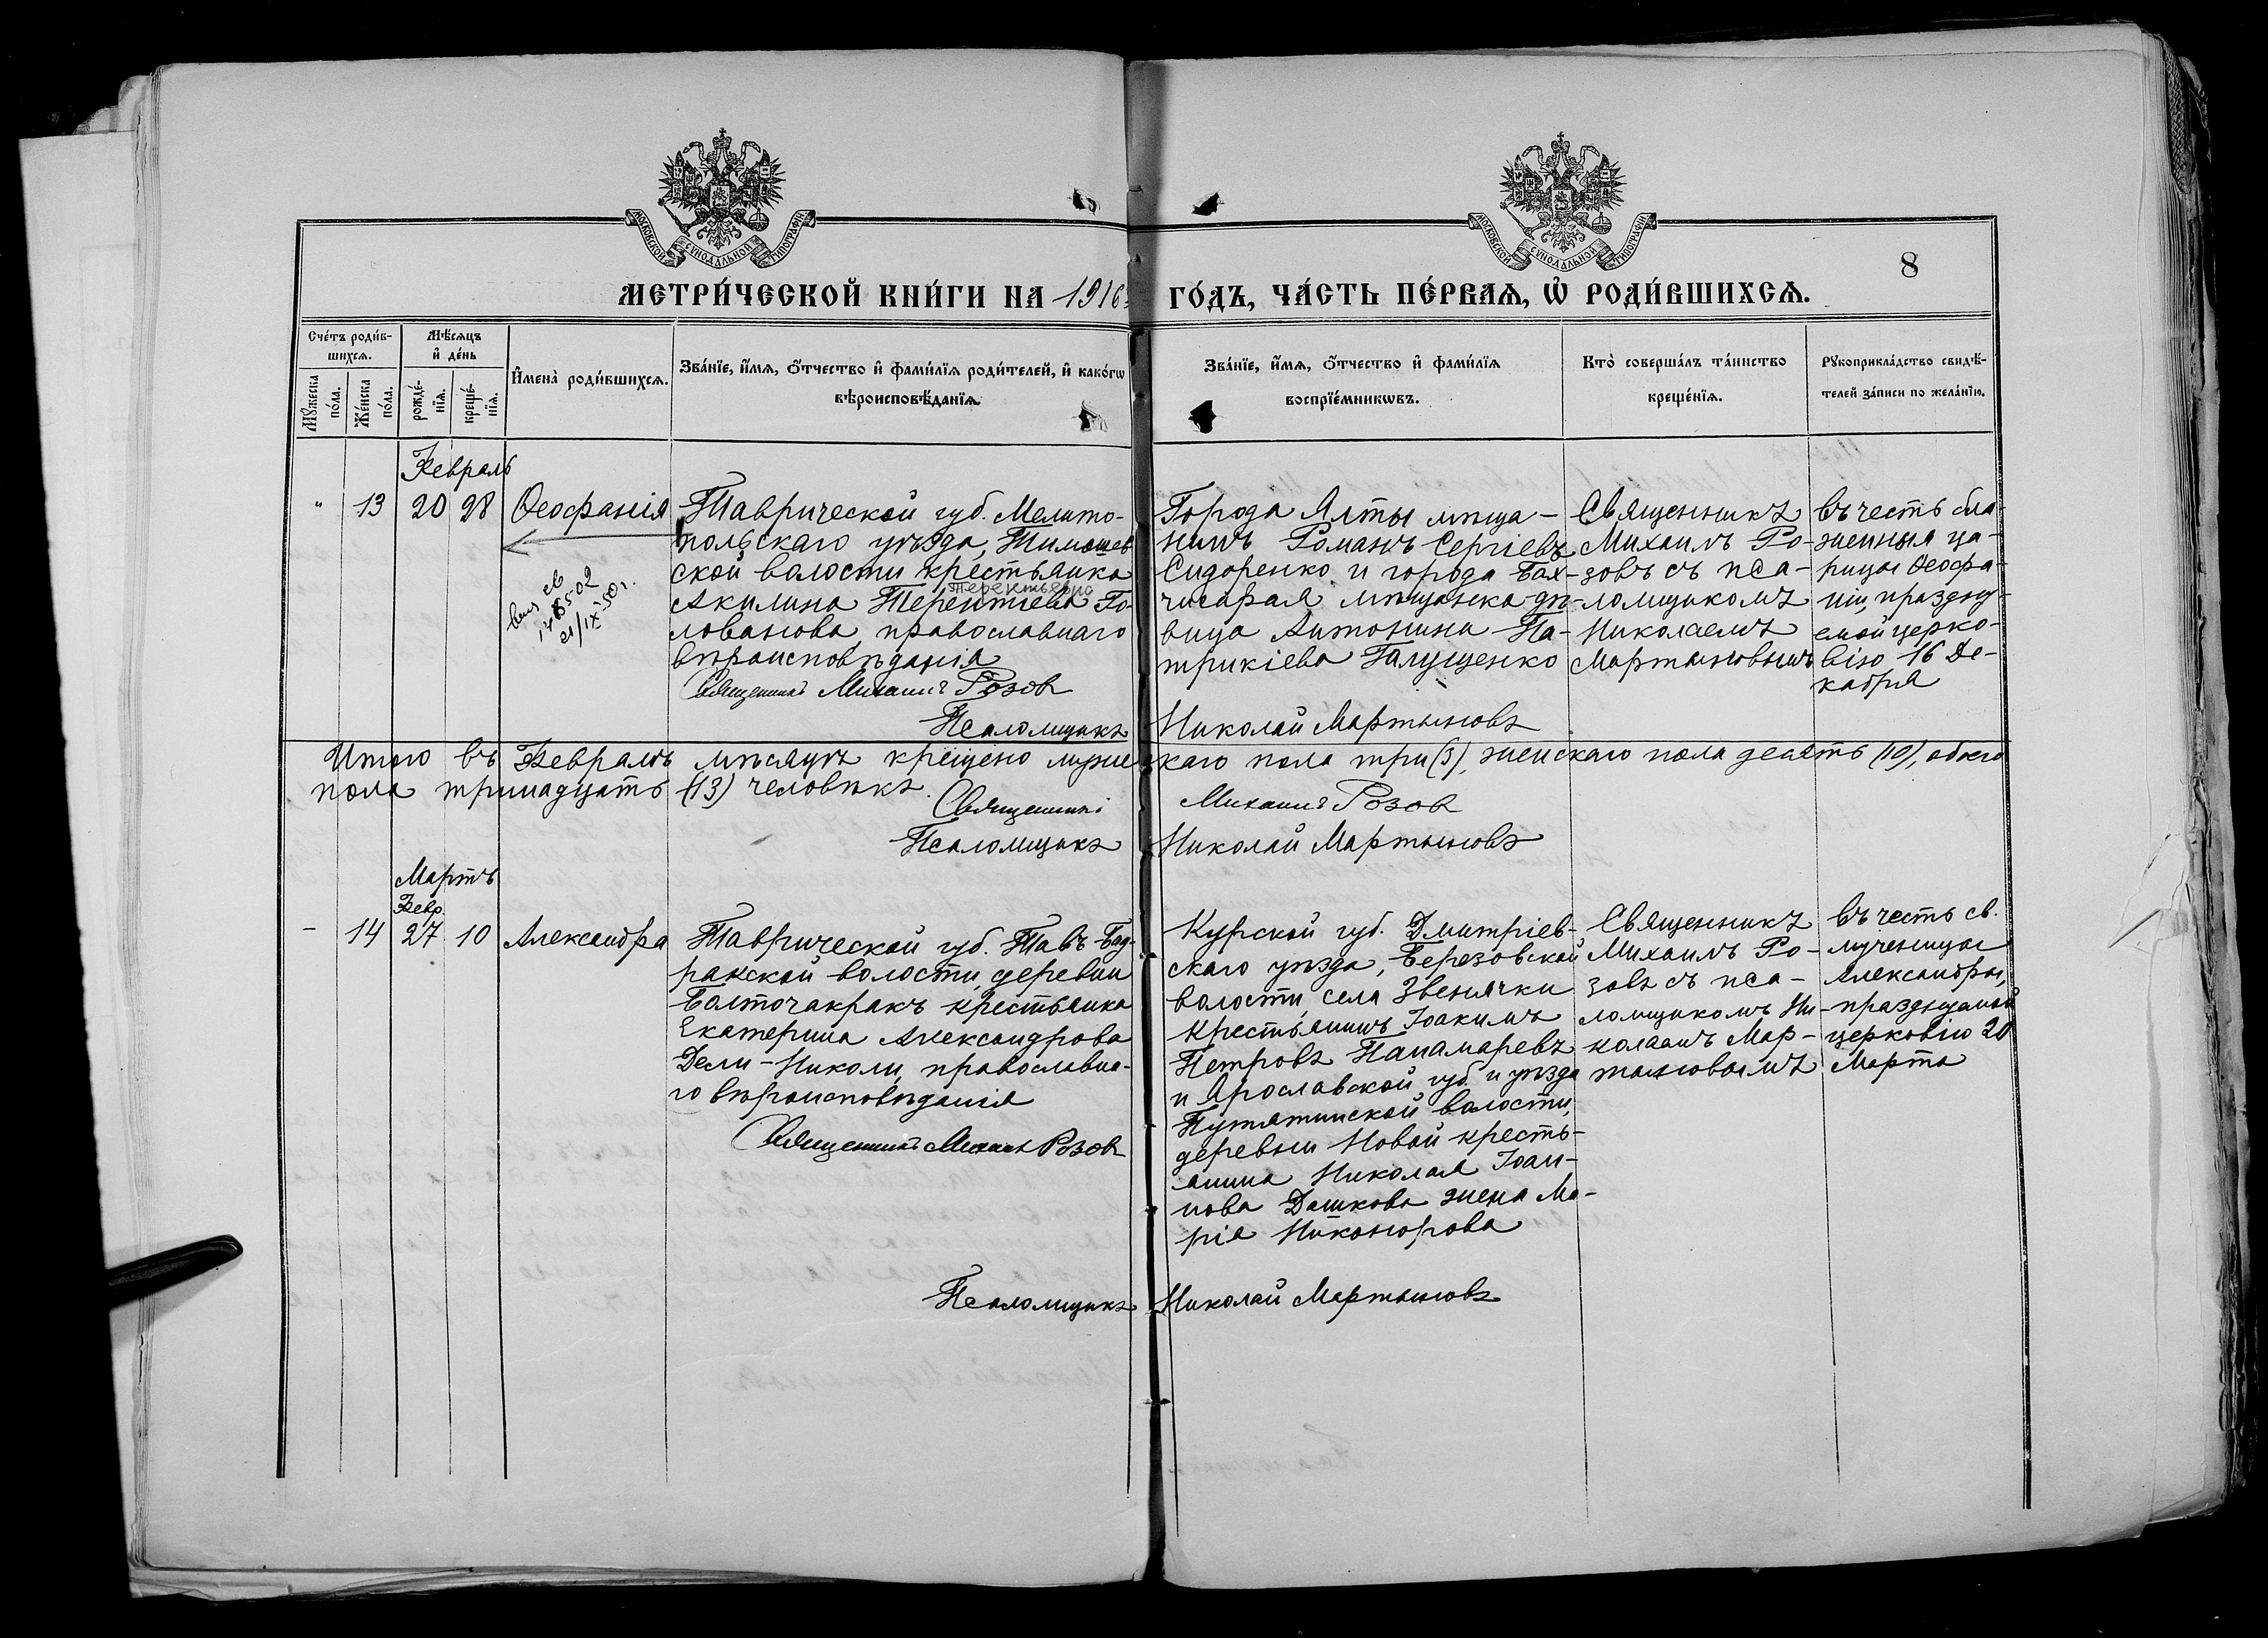 МОСКОВСКОЙ СѴНОДАЛЬНОЙ ТИПОГРАФІИ
МОСКОВСКОЙ СѴНОДАЛЬНОЙ ТИПОГРАФІИ
8
МЕТРИ́ЧЕСКОЙ КНИ́ГИ НА 1916 ГО́ДЪ, ЧА́СТЬ ПЕ́РВАѦ, Ѡ҆ РОДИ́ВШИХСѦ.
Сче́тъ роди́в-
шихсѧ.
Мꙋ́жеска по́ла.
Же́нска по́ла.
Мѣ́сѧцъ
и҆ де́нь
рожде́-
нїѧ.
креще́-
нїѧ.
И҆мена̀ роди́вшихсѧ.
Зва́нїе, и҆́мѧ, ѻ҆́тчество и҆ фами́лїѧ роди́телей, и҆ како́гѡ
вѣроисповѣ́данїѧ.
Зва́нїе, и҆́мѧ, ѻ҆́тчество и҆ фами́лїѧ
воспрїе́мникѡвъ.
Кто̀ соверша́лъ та́инство
креще́нїѧ.
Рꙋкоприкла́дство свидѣ́-
телей за́писи по жела́нїю.
Февраль
" 13 20 28 Ѳеофанія
Таврической губ. Мелито-
польскаго уѣзда, Тимошев
ской волости крестьянка
Терентьевна
Акилина Терентіева Го-
лованова, православнаго
вѣроисповѣданія
Священникъ Михаилъ Розов
св
21/IX 50 г.
Города Ялты мѣща-
нинъ Романъ Сергіевъ
Сидоренко и города Бах-
чисарая мѣщанка дѣ-
вица Антонина Па-
трикіева Галущенко
Священникъ
Михаилъ Ро-
зовъ съ пса-
ломщикомъ
Николаемъ
Мартыновымъ
въ честь бла-
женныя ца-
рицы Ѳеофа-
ніи, праздну-
емой церко-
вію 16 Де-
кабря
Псаломщикъ Николай Мартыновъ
Итого въ Февралѣ мѣсяцѣ крещено мужескаго пола три (3), женскаго пола десять (10), обоего
пола тринадцать (13) человѣкъ.
Священникъ Михаилъ Розов
Псаломщикъ Николай Мартыновъ
Мартъ
Февр.
- 14 27 10 Александра
Таврической губ. Тавъ-Бад-
ракской волости, деревни
Болточакракъ крестьянка
Екатерина Александрова
Дели-Николи, православна-
го вѣроисповѣданія
Священникъ Михаилъ Розов
Курской губ. Дмитріев-
скаго уѣзда, Березовской
волости, села Звенячки
крестьянинъ Іоакимъ
Петровъ Панамаревъ
и Ярославской губ. и уѣзда
Путятинской волости,
деревни Новой кресть-
янина Николая Іоан-
нова Дашкова жена Ма-
рія Никанорова
Священникъ
Михаилъ Ро-
зовъ съ пса-
ломщикомъ Ни-
колаемъ Мар-
тыновымъ
въ честь св.
мученицы
Александры,
празднуемой
церковію 20
Марта
Псаломщикъ Николай Мартыновъ